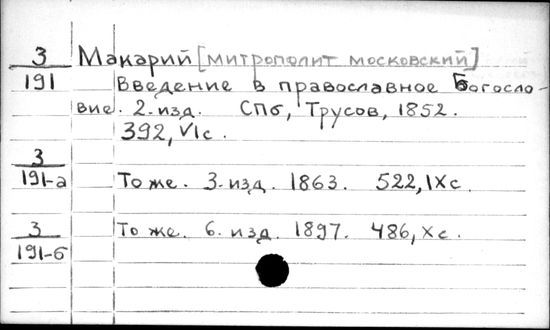 3 Макарий [митрополит московский]
191 Введение в православное Богосло-
вие. 2. изд. СПб, Трусов, 1852.
392, VI с.
3
191-а То же. 3. изд. 1863. 522, IX с.
3 То же. 6. изд. 1897. 486, X с.
191-б